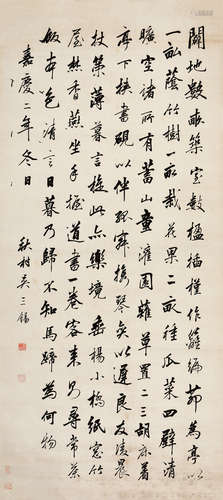 闢地數畝築室數楹插槿作籬編茆為亭以
一畝蔭竹樹一畝栽花果二畝種瓜菜四壁清
曠空諸所有蓄山童灌園薙草置二三胡床着
亭下挾書硯以伴孤寂攜琴奕以遲良友凌晨
杖策薄暮言旋此亦樂境垂楊小橋紙窗竹
屋焚香燕坐手握道書一卷客來則尋常茶
飯本色清言日暮乃歸不知馬蹄為何物
嘉慶二年冬日
秋村吳三錫